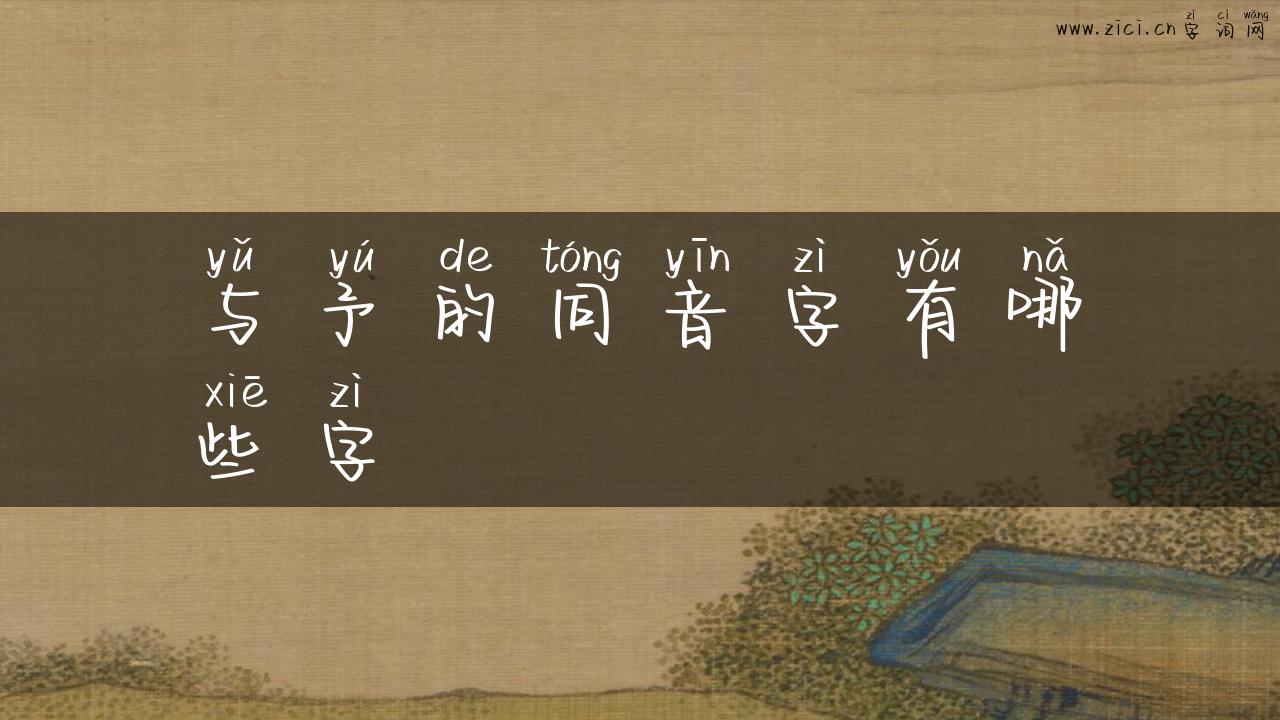 zì cí wǎng
www.zici.cn 字 词 网
yǔ yú de tóng yīn zì yǒu nǎ
与 予 的 同 音 字 有 哪
xiē zì
些 字